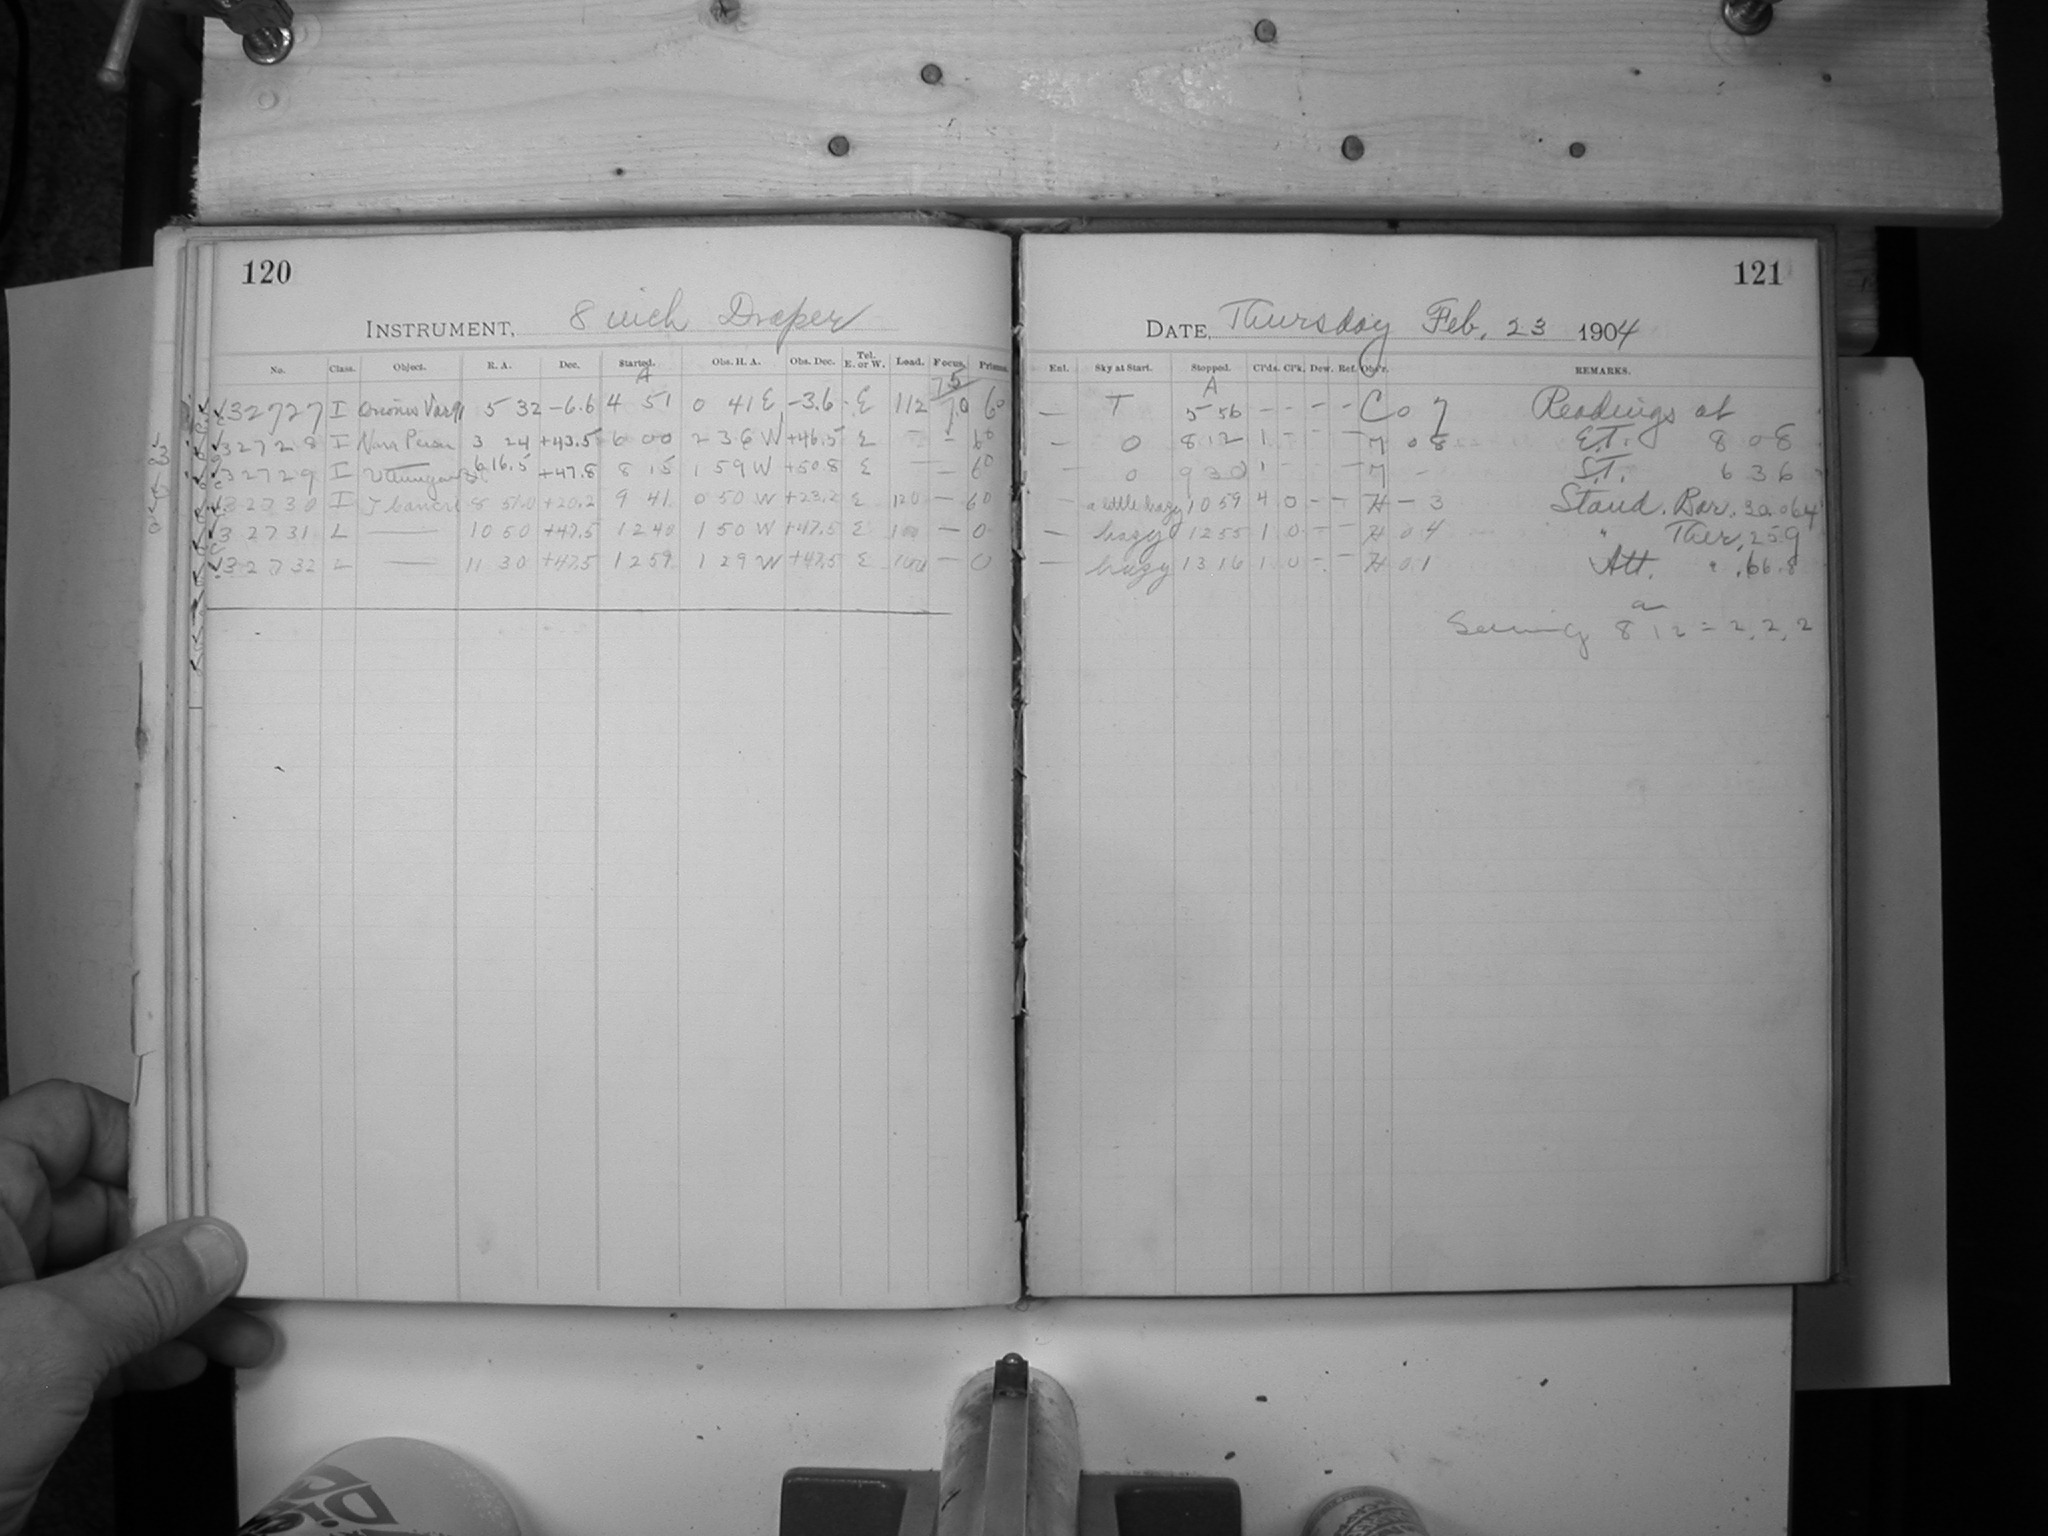 120
INSTRUMENT, 8 inch Draper
No. Class. Object. R. A. Dec. Started. Obs. H. A. Obs. Dec. Tel. E. or W. Load. Focus. Prisms.
A 75
32727 I Orionis Var 5 32 -6.6 4 51 0 41 E -3.6 E 112 70 60
32728 I Nova Persei 3 24 +43.5 6 00 2 36 W +46.5 E - - 60
32729 I 6 16.5 +47.8 8 15 1 59 W +50.8 E - - 60
32730 I T Cancri 8 51.0 +20.2 9 41 0 50 W +23.2 E 120 - 60
32731 L — 10 50 +47.5 12 40 1 50 W +47.5 E 100 - 0
32732 L — 11 30 +47.5 12 59 1 29 W +47.5 E 100 - 0
121
DATE, Thursday Feb. 23 1904
Ent. Sky at Start. Stopped. Cl'ds. Cl'k. Dew. Ref. Obs'r. REMARKS.
A
— T 5 56 - - - - C 0 7 Readings at
— 0 8 12 1 - - - 7 0 8 E.T. 8 0 8
- 0 9 30 1 - - - 7 - S.T. 6 36
— a little hazy 10 59 4 0 - - H - 3 Stand. Bar. 30.064
— hazy 12 55 1 0 - - H 0 4 " Ther. 25.9
— hazy 13 16 1 0 - - H 0 1 Att. " 66.8
Seeing 8 12 = 2, 2, 2
Die